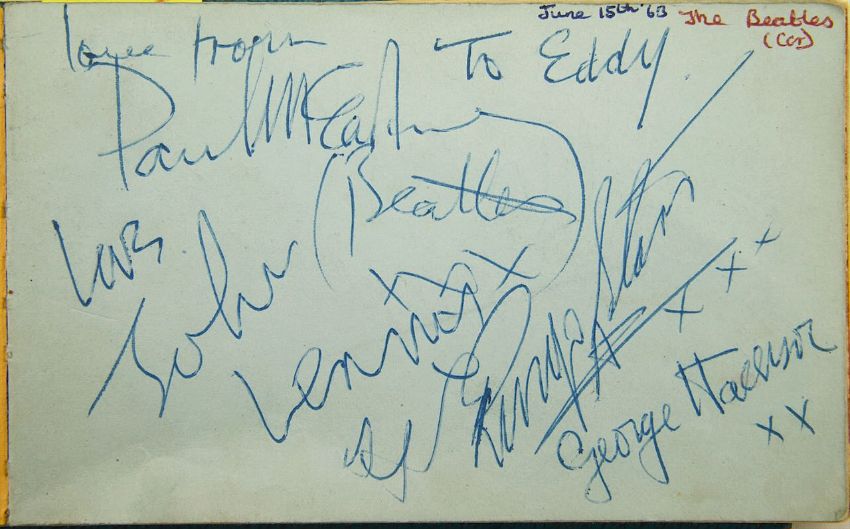 June 15th '63 The Beatles
(Car)
love from
To Eddy.
Paul McCartney
(Beatles)
love
John
Lennon
xxx
Ringo Starr
xxx
George Harrison
xx